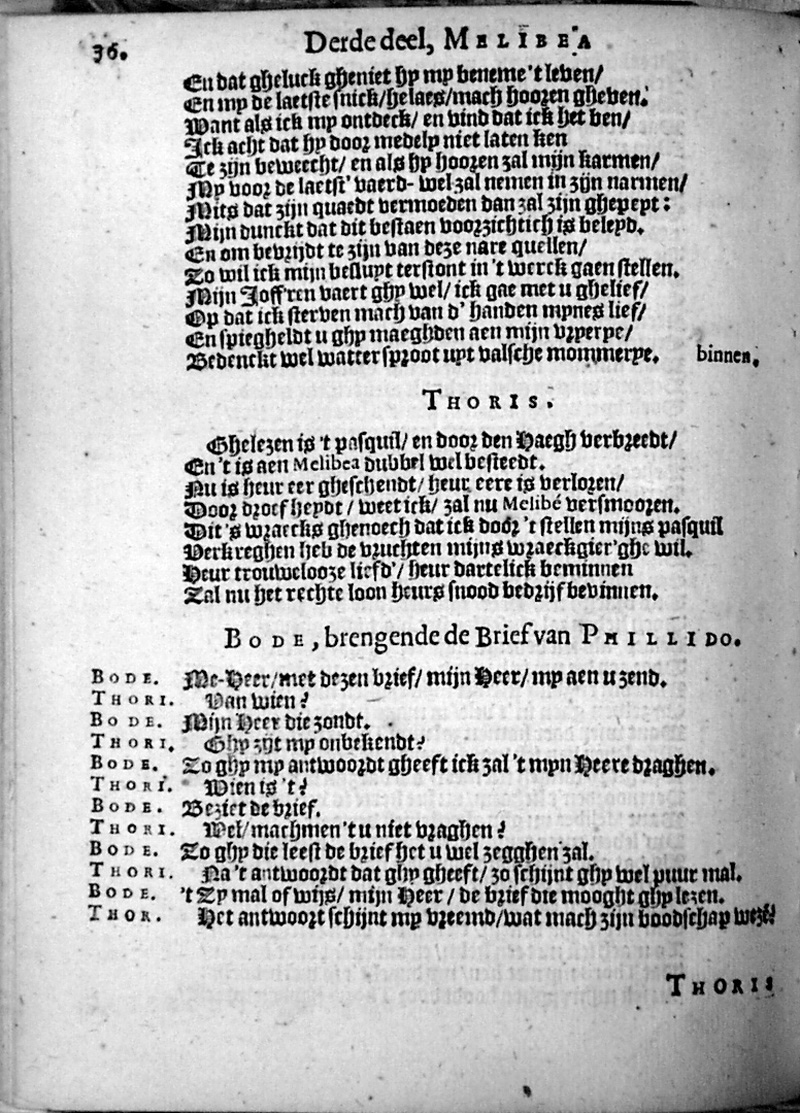 36.
Derde deel, MELIBEA
En dat gheluck gheniet hy my beneme 't leven/
En my de laetste snick/helaes/mach hooren gheven.
Want als ick my ontdeck/ en vind dat ick het ben/
Ick acht dat hy door medely niet laten ken
Te zijn beweecht/ en als hy hooren zal mijn karmen/
My voor de laetst' vaerd-wel zal nemen in zijn narmen/
Mits dat zijn quaedt vermoeden dan zal zijn ghepeyt:
Mijn dunckt dat dit bestaen voorzichtich is beleyd.
En om bevrijdt te zijn van deze nare quellen/
Zo wil ick mijn besluyt terstont in 't werck gaen stellen.
Mijn Joff'ren vaert ghy wel/ ick gae met u ghelief/
Op dat ick sterven mach van d' handen mynes lief/
En spiegheldt u ghy maeghden aen mijn vryerye/
Bedenckt wel watter sproot uyt valsche mommerye. binnen.
THORIS.
Ghelezen is 't pasquil/ en door den Haegh verbreedt/
En 't is aen Melibea dubbel wel besteedt.
Nu is heur eer gheschendt/ heur eere is verloren/
Door droefheydt/ weet ick/ zal nu Melibé versmooren.
Dit 's wraecks ghenoech dat ick door 't stellen mijns pasquil
Verkreghen heb de vruchten mijns wraeckgier'ghe wil.
Heur trouwelooze liefd'/ heur dartelick beminnen
Zal nu het rechte loon heurs snood bedrijf bevinnen.
BODE, brengende de Brief van PHILLIDO.
BODE. Me-Heer/met dezen brief/ mijn Heer/ my aen u zend.
THORI. Van wien?
BODE. Mijn Heer die zondt.
THORI. Ghy zijt my onbekendt?
BODE. Zo ghy my antwoordt gheeft ick zal 't myn Heere draghen.
THORI. Wien is 't?
BODE. Beziet de brief.
THORI. Wel/machmen 't u niet vraghen?
BODE. Zo ghy die leest de brief het u wel zegghen zal.
THORI. Na 't antwoordt dat ghy gheeft/ zo schijnt ghy wel puur mal.
BODE. 't Zy mal of wijs/ mijn Heer/ de brief die mooght ghy lezen.
THOR. Het antwoort schijnt my vreemd/wat mach zijn boodschap
THORIS